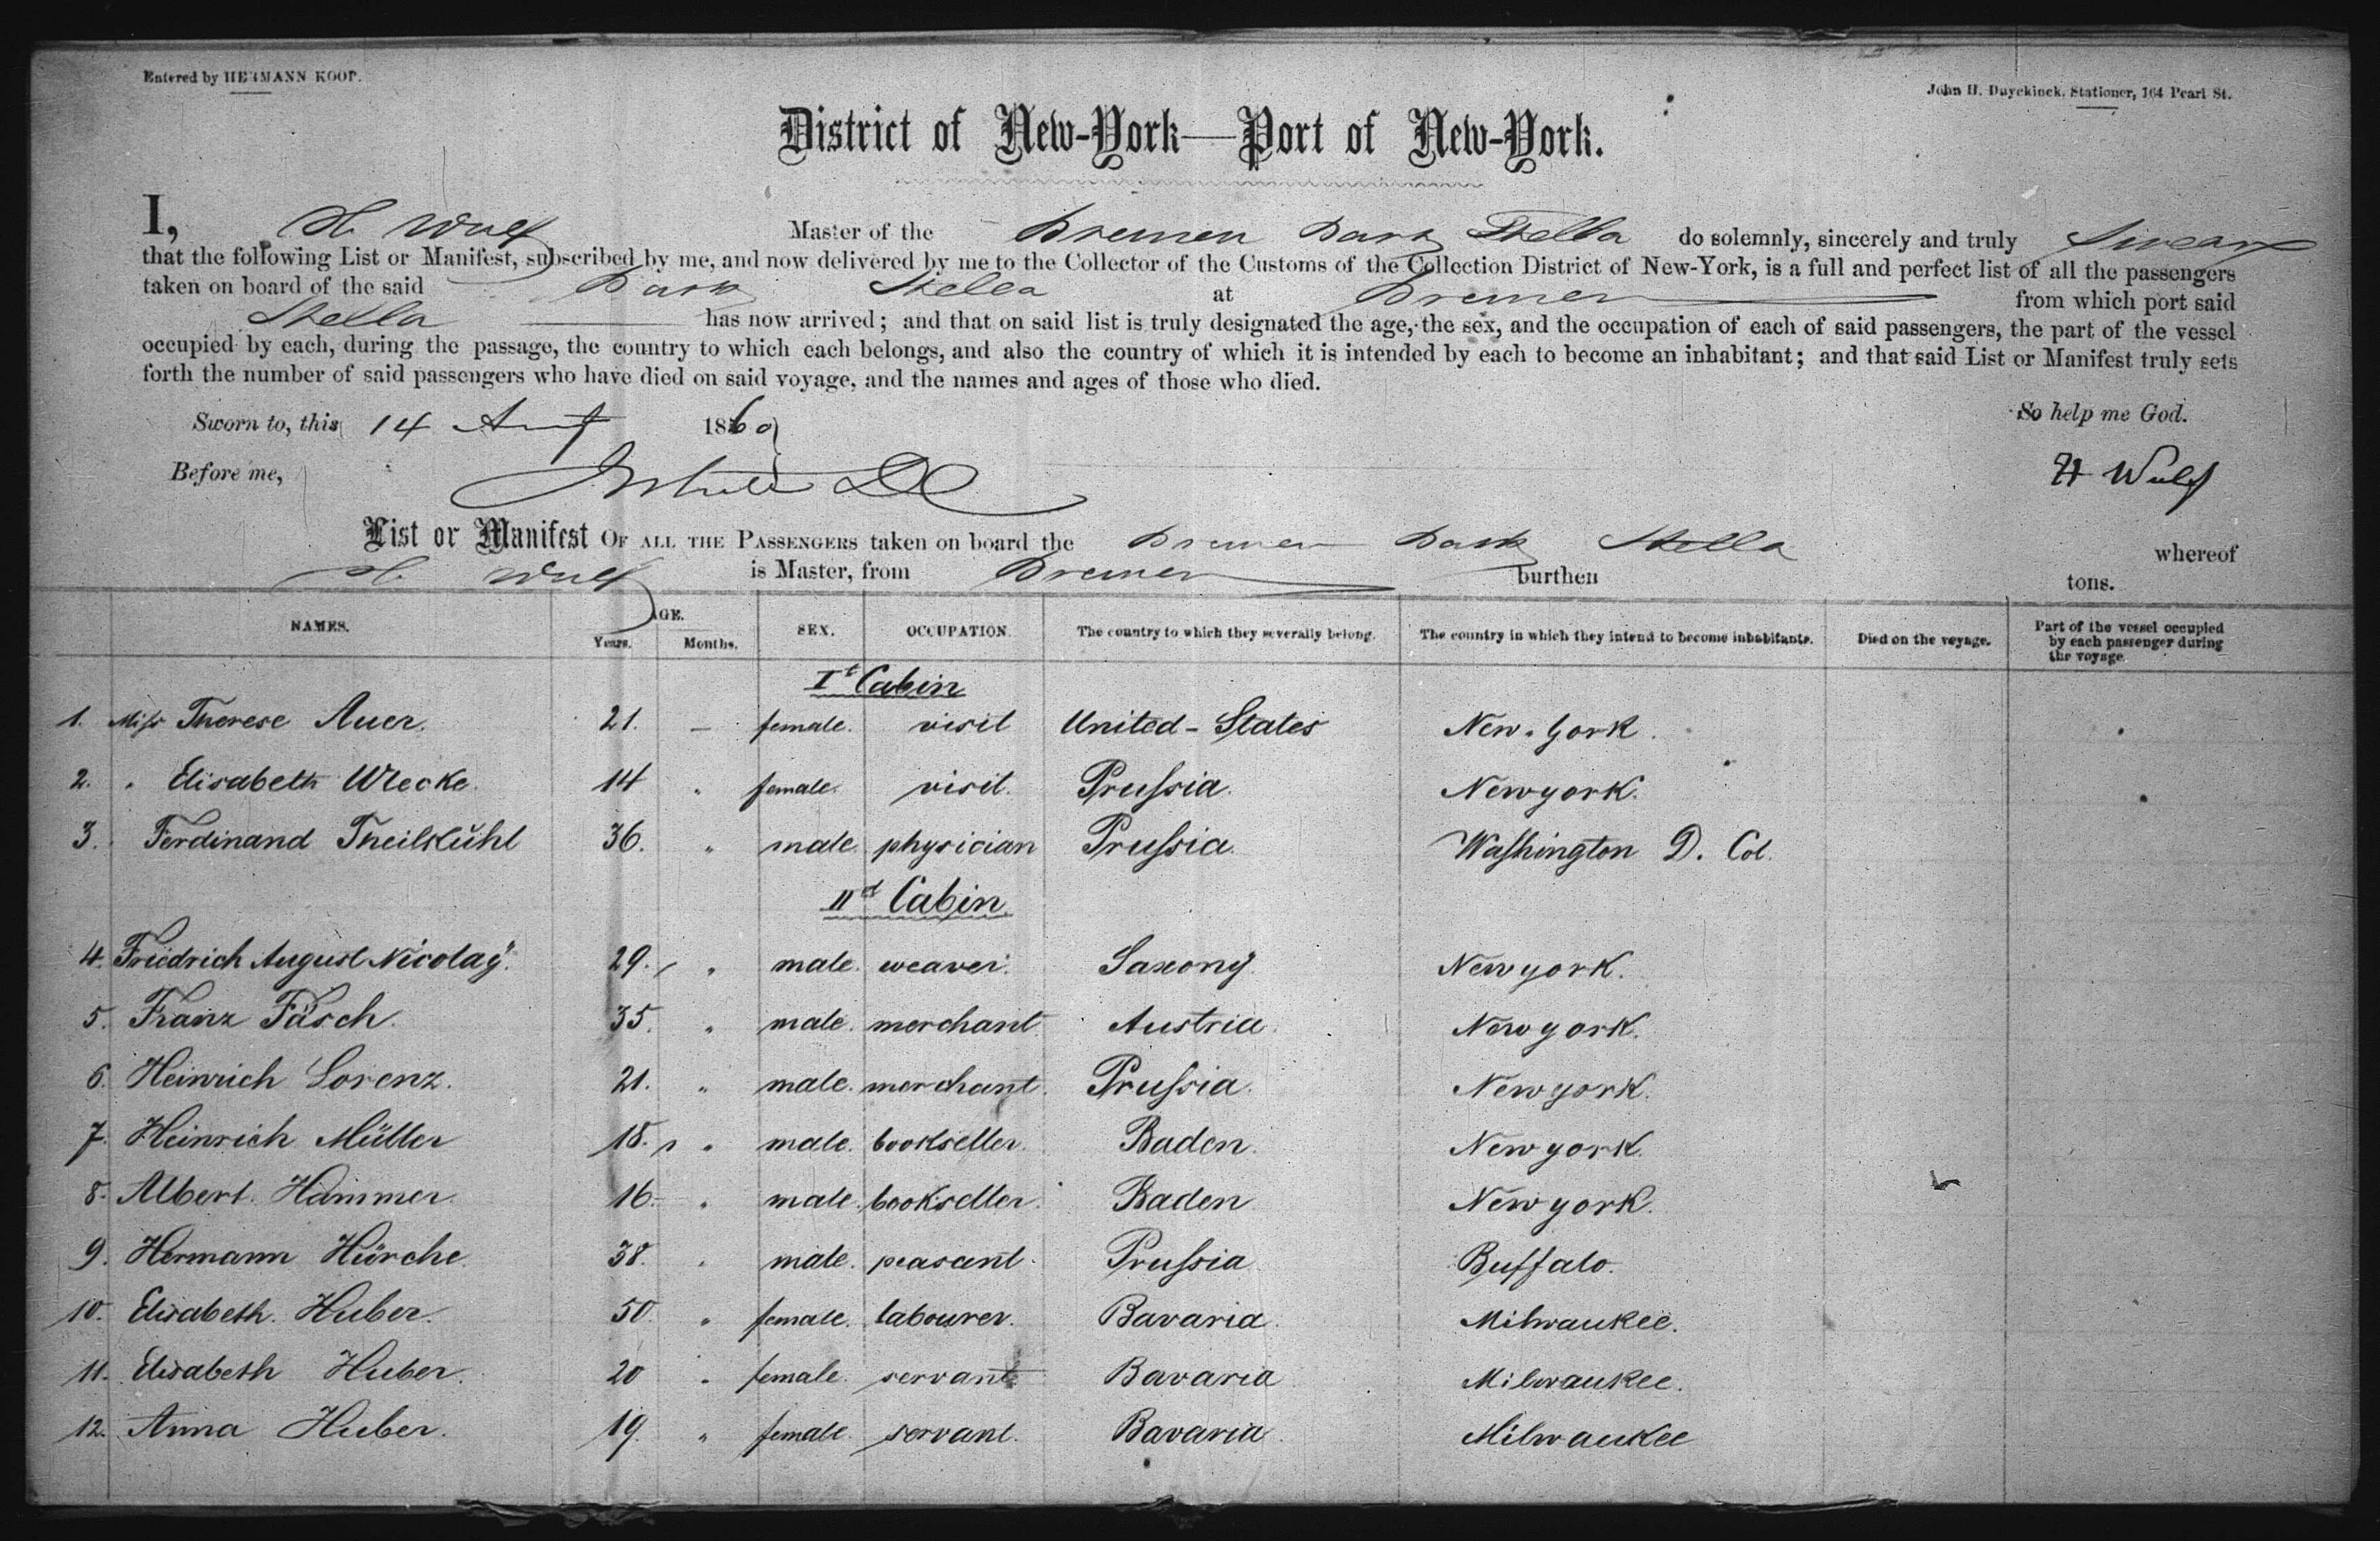 Entered by HERMANN KOOP.
John H. Duyckinck, Stationer, 164 Pearl St.
District of New-York—Port of New-York.
I, H. Wulf Master of the Bremen Bark Stella do solemnly, sincerely and truly Swear
that the following List or Manifest, subscribed by me, and now delivered by me to the Collector of the Customs of the Collection District of New-York, is a full and perfect list of all the passengers
taken on board of the said Bark Stella at Bremen from which port said
Stella has now arrived; and that on said list is truly designated the age, the sex, and the occupation of each of said passengers, the part of the vessel
occupied by each, during the passage, the country to which each belongs, and also the country of which it is intended by each to become an inhabitant; and that said List or Manifest truly sets
forth the number of said passengers who have died on said voyage, and the names and ages of those who died.
So help me God.
Sworn to, this 14 Aug 1860
Before me,
H Wulf
List or Manifest OF ALL THE PASSENGERS taken on board the Bremen Bark Stella whereof
H. Wulf is Master, from Bremen burthen tons.
NAMES. AGE. Years. Months. SEX. OCCUPATION. The country to which they severally belong. The country in which they intend to become inhabitants. Died on the voyage. Part of the vessel occupied by each passenger during the voyage
Ist Cabin
1. Miss Therese Auer. 21. — female. visit United-States New-York.
2. " Elisabeth Wrecke. 14 " female. visit. Prussia. Newyork.
3. Ferdinand Theilkühl 36. " male. physician Prussia. Washington D. Col.
IInd Cabin
4. Friedrich August Nicolay. 29. " male. weaver. Saxony. Newyork.
5. Franz Fäsch. 35. " male. merchant. Austria. Newyork.
6. Heinrich Lorenz. 21. " male. merchant. Prussia. Newyork.
7. Heinrich Müller 18. " male. bookseller. Baden. Newyork.
8. Albert Hammer 16. " male. bookseller. Baden Newyork.
9. Hermann Hürche. 38. " male. peasant. Prussia. Buffalo.
10. Elisabeth. Huber. 50. " female. labourer. Bavaria. Milwaukee.
11. Elisabeth Huber. 20 " female. servant. Bavaria Milwaukee.
12. Anna Huber. 19. " female. servant. Bavaria. Milwaukee